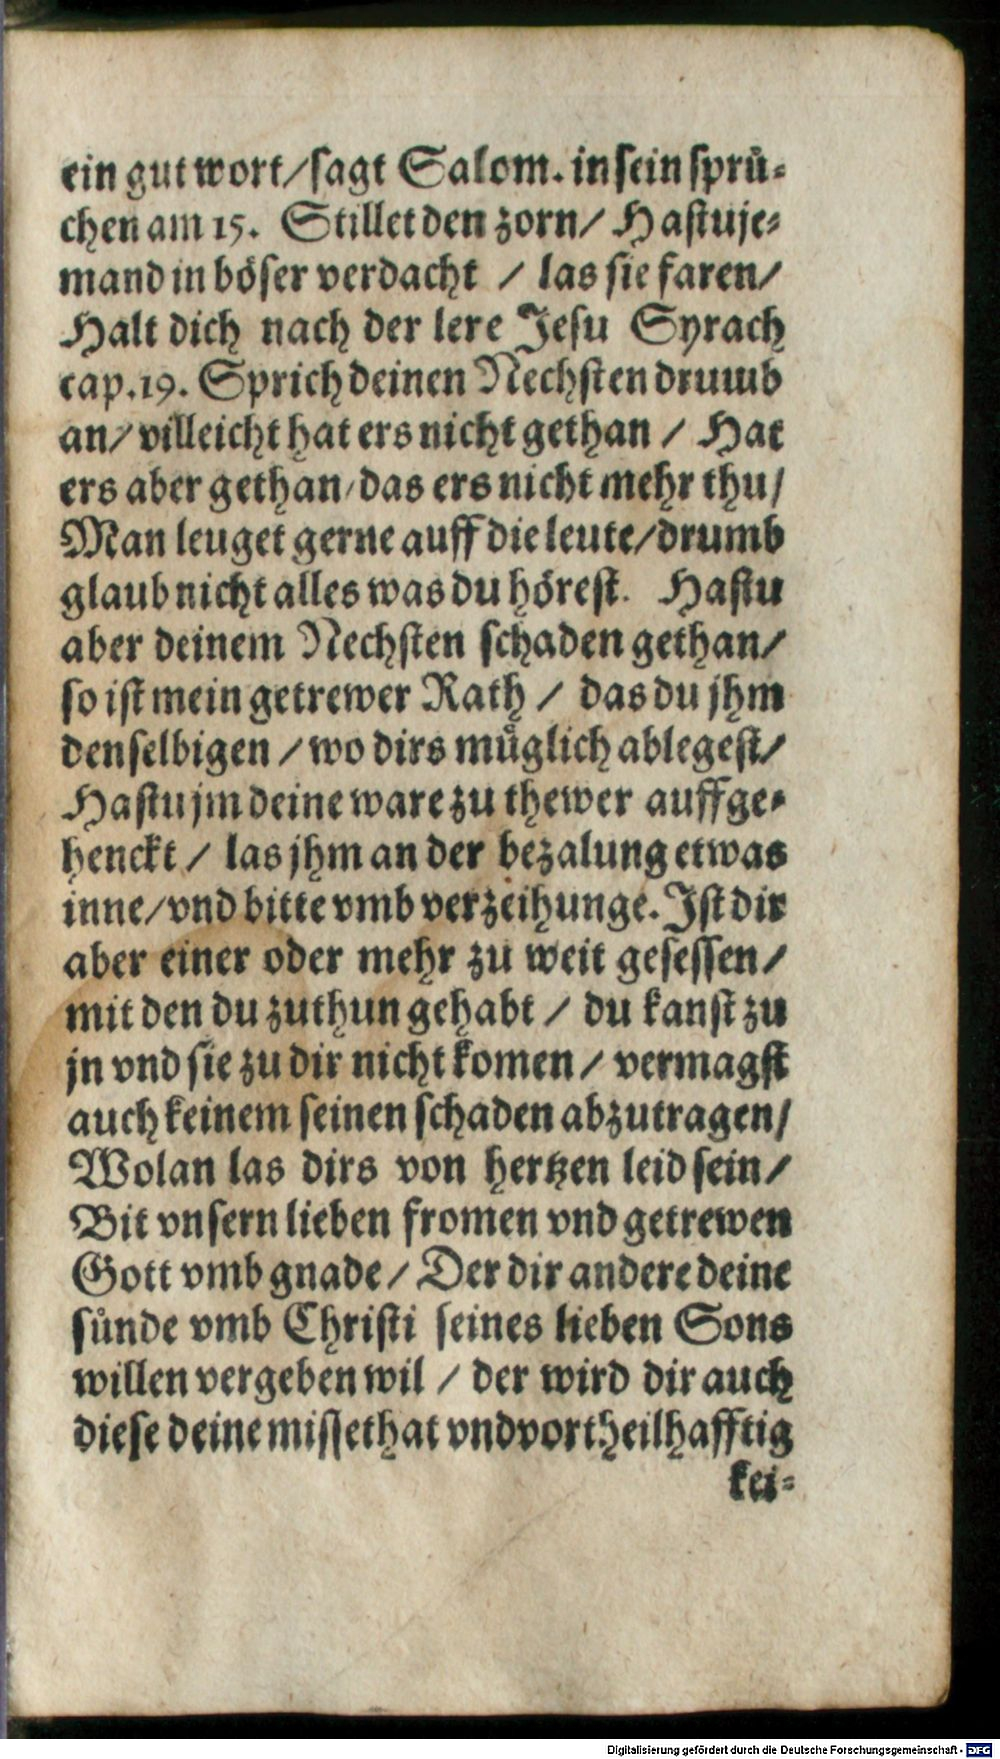 ein gut wort/ sagt Salom. in sein sprü-
chen am 15. Stillet den zorn/ Hastu je-
mand in böser verdacht / las sie faren/
Halt dich nach der lere Jesu Syrach
cap. 19. Sprich deinen Nechsten drumb
an/ villeicht hat ers nicht gethan / Hat
ers aber gethan/ das ers nicht mehr thu/
Man leuget gerne auff die leute/ drumb
glaub nicht alles was du hörest. Hastu
aber deinem Nechsten schaden gethan/
so ist mein getrewer Rath / das du jhm
denselbigen / wo dirs müglich ablegest/
Hastu jm deine ware zu thewer auffge-
henckt / las jhm an der bezalung etwas
inne/ vnd bitte vmb verzeihunge. Ist dir
aber einer oder mehr zu weit gesessen/
mit den du zuthun gehabt / du kanst zu
jn vnd sie zu dir nicht komen / vermagst
auch keinem seinen schaden abzutragen/
Wolan las dirs von hertzen leid sein/
Bit vnsern lieben fromen vnd getrewen
Gott vmb gnade/ Der dir andere deine
sünde vmb Christi seines lieben Sons
willen vergeben wil / der wird dir auch
diese deine missethat vnd vortheilhafftig
kei-
Digitalisierung gefördert durch die Deutsche Forschungsgemeinschaft - DFG